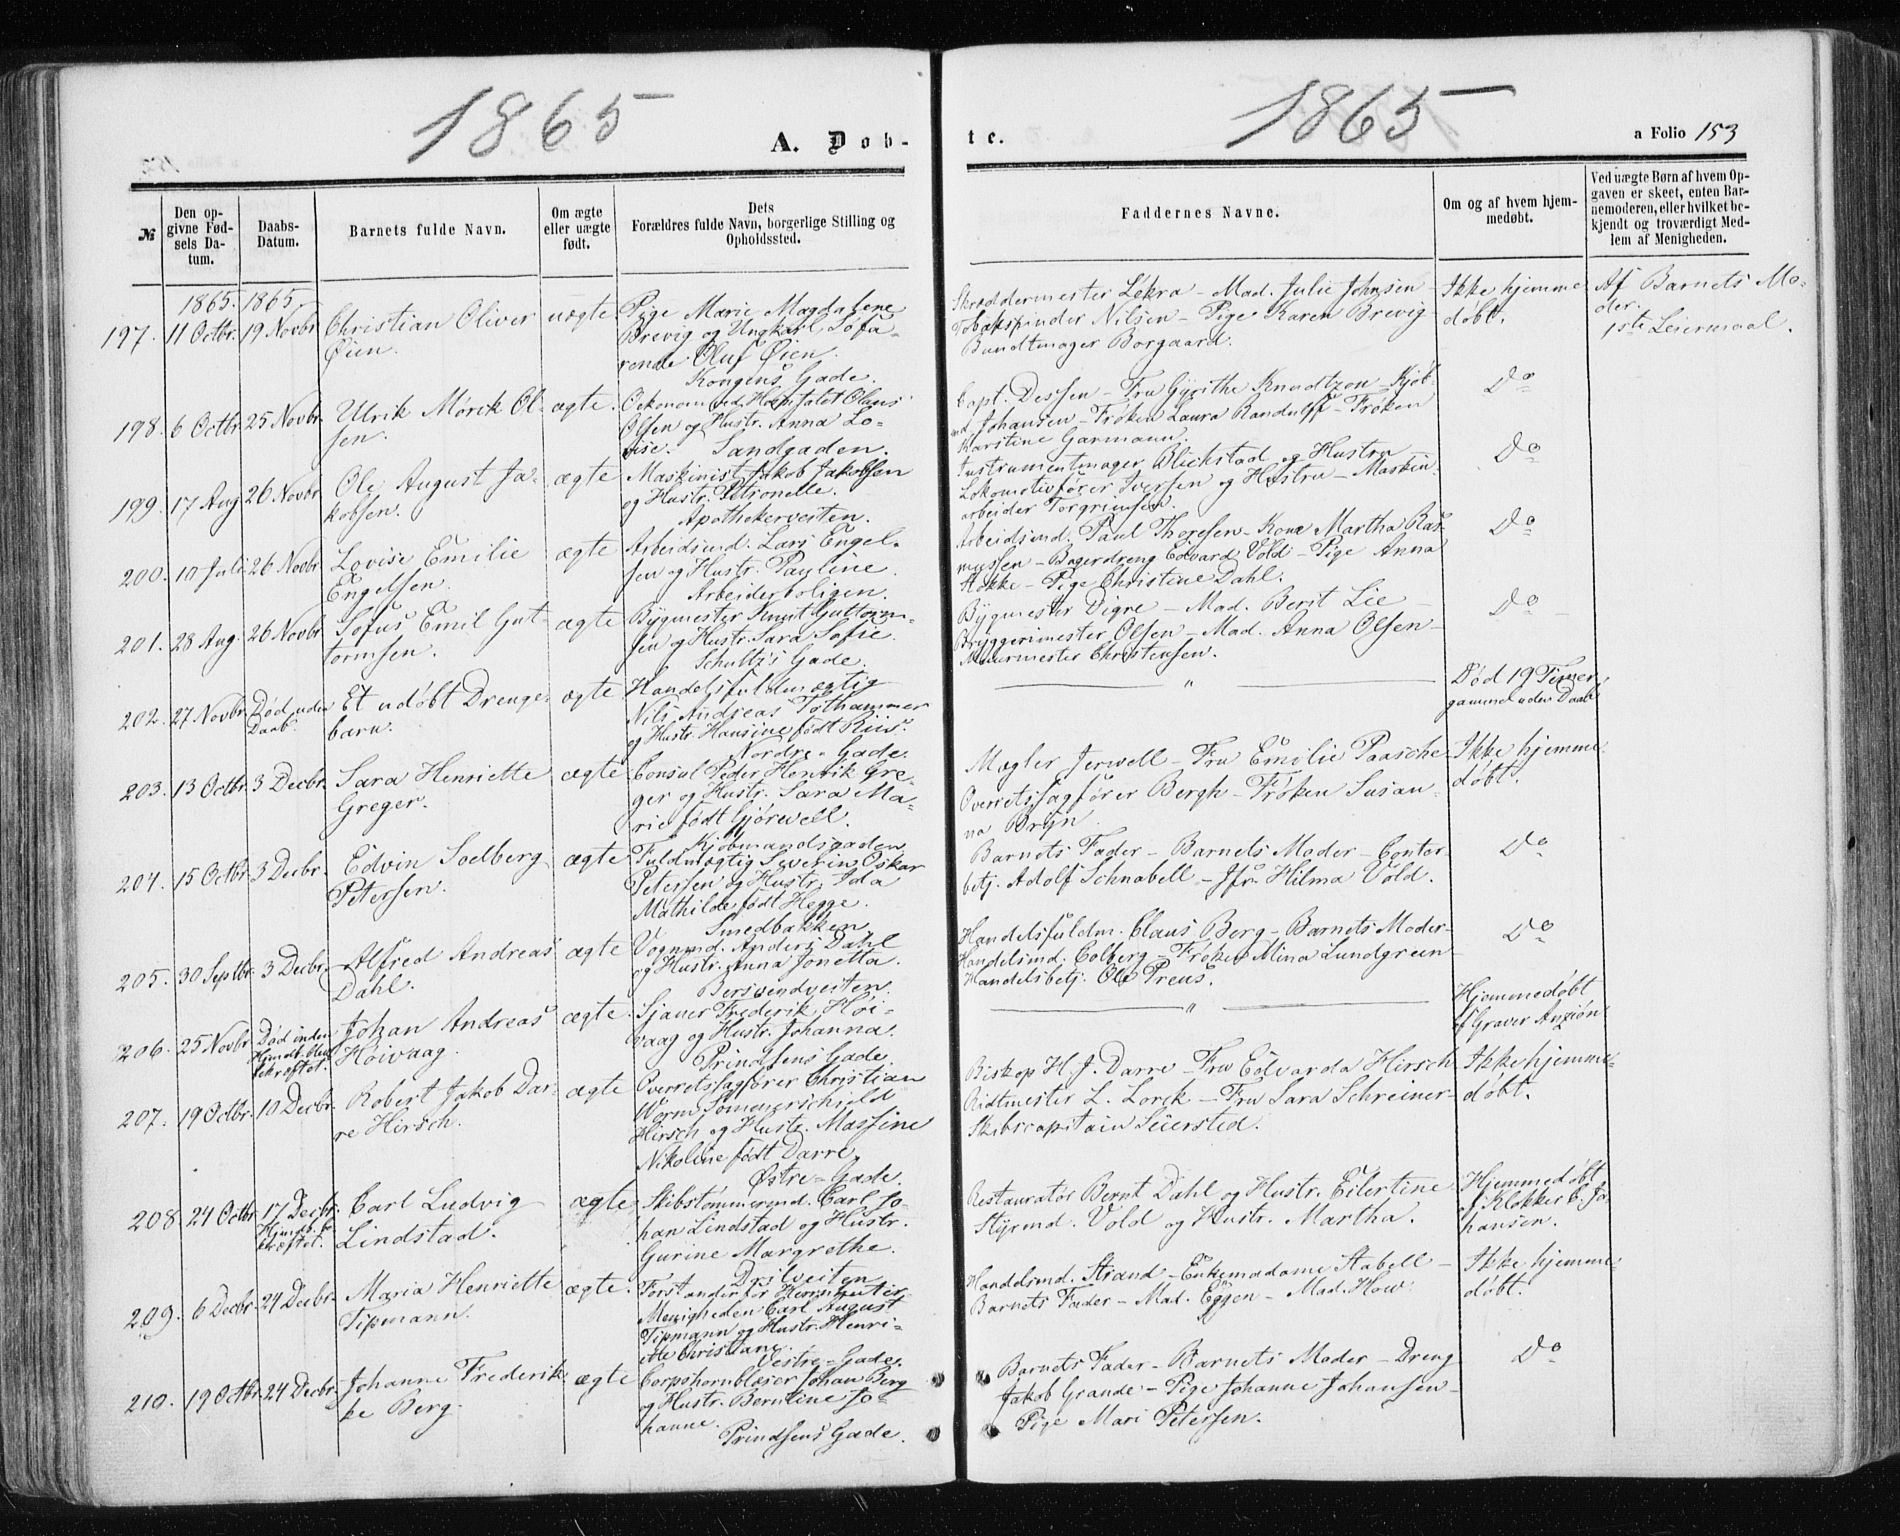 1865
1865
A. Døb-
te.
a Folio 153
№
Den op-
givne Fød-
sels Da-
tum.
Daabs-
Datum.
Barnets fulde Navn.
Om ægte
eller uægte
født.
Dets
Forældres fulde Navn, borgerlige Stilling og
Opholdssted.
Faddernes Navne.
Om og af hvem hjem-
medøbt.
Ved uægte Børn af hvem Op-
gaven er skeet, enten Bar-
nemoderen, eller hvilket be-
kjendt og troværdigt Med-
lem af Menigheden.
1865. 1865.
197. 11 Octbr. 19 Novbr
Christian Oliver
Øien.
uægte
Pige Marie Magdalene
Brevig og Ungkarl Søfa-
rende Oluf Øien.
Kongens Gade.
Skræddermester Lekra - Mad. Julie Johnsen -
Tobakspinder Nilsen - Pige Karen Brevig
Bundtmager Borgaard.
Ikke hjemme
døbt.
Af Barnets Mo-
der.
1ste Leiermaal.
198. 6 Octbr. 25 Novbr.
Ulrik Mørch Ol-
sen.
ægte.
Oekonom ved Hospitalet Olaus
Olsen og Hustr. Anna Lo-
vise. Sandgaden.
Capt. Dessen - Fru Gyrithe Knudtzon - Kjøb-
md Johansen - Frøken Laura Randulff - Frøken
Karstine Garmann.
Do
199. 17 Aug 26 Novbr
Ole August Ja-
kobsen.
ægte
Maskinist Jakob Jakobsen
og Hustr. Petronelle.
Apothekerveiten.
Instrumentmager Blichstad og Hustru
Lokomotivfører Iversen og Hustru - Maskin-
arbeider Torgrimsen.
Do
200. 10 Juli 26 Novbr
Lovise Emilie
Engelsen.
ægte
Arbeidsmd. Lars Engel-
sen og Hustr. Pauline.
Arbeiderboligen.
Arbeidsmd. Paul Thoresen - Kone Martha Ras-
mussen - Bagerdreng Edvard Vold - Pige Anna
Hokke - Pige Christine Dahl.
Do
201. 28 Aug. 26 Novbr
Sofus Emil Gut-
tormsen.
ægte
Bygmester Knut Guttorm-
sen og Hustr. Sara Sofie.
Schultz's Gade.
Bygmester Digre - Mad. Berit Lie -
Bryggermester Olsen - Mad. Anna Olsen -
Muurmester Christensen.
Do
202. 27 Novbr
Død uden
Daab.
Et udøbt Drenge-
barn.
ægte
Handelsfuldmægtig
Nils Andreas Tothammer
og Hustr. Hansine født Riis.
Nordre-Gade.
"
Død 19 Timer
gammel uden Daab
203. 13 Octbr. 3 Decbr.
Sara Henriette
Greger.
ægte
Consul Peder Henrik Gre-
ger og Hustr. Sara Ma-
rie født Gjørwell.
Kjøbmandsgaden
Mægler Jerwell - Fru Emilie Paasche
Overretssagfører Bergh - Frøken Susan-
na Bryn.
Ikke hjemme
døbt.
204. 15 Octbr. 3 Decbr.
Edvin Soelberg
Petersen.
ægte
Fuldmægtig Severin Oskar
Petersen og Hustr. Ida
Mathilde født Hegge.
Smedbakken
Barnets Fader - Barnets Moder - Contor-
betj. Adolf Schnabell - Jfr. Hilma Vold.
Do
205. 30 Septbr. 3 Decbr.
Alfred Andreas
Dahl.
ægte
Vognmd. Anders Dahl
og Hustr. Anna Jonetta.
Bersvendveiten.
Handelsfuldm. Claus Berg - Barnets Moder -
Handelsmd. Colberg - Frøken Mina Lundgreen -
Handelsbetj. Ole Preus.
Do
206. 25 Novbr
Død inden
Hjmdb. blev
bekræftet.
Johan Andreas
Høivaag.
ægte.
Sjauer Frederik Høi-
vaag og Hustr. Johanna.
Prindsens Gade.
"
Hjemmedøbt
af Graver Anziøn
207. 19 Octbr. 10 Decbr.
Robert Jakob Dar-
re Hirsch.
ægte
Overretssagfører Christian
Worm Sommerschield
Hirsch og Hustr. Massine
Nikoline født Darre.
Østre-Gade.
Biskop H. J. Darre - Fru Edvarda Hirsch
Ridtmester L. Lorck - Fru Sara Schreiner -
Skibscapitain Seiersted.
Ikke hjemme-
døbt.
208. 24 Octbr. 17 Decbr.
Hjmdb. be-
kræftet.
Carl Ludvig
Lindstad.
ægte
Skibstømmermd. Carl Jo-
han Lindstad og Hustr.
Gurine Margrethe.
Dsilveiten
Restauratør Bernt Dahl og Hustr. Eilertine
Styrmd. Vold og Hustr. Martha.
Hjemmedøbt
af Klokker C. Jo-
hansen.
209. 6 Decbr. 24 Decbr.
Maria Henriette
Tipmann.
ægte.
Forstander for Herrnhuter-
Menigheden Carl August
Tipmann og Hustr. Henri-
ette Christiane.
Vestre-Gade.
Handelsmd. Strand - Enkemadame Stabell -
Barnets Fader - Mad. Eggen - Mad. How
Ikke hjemme-
døbt.
210. 19 Octbr. 24 Decbr.
Johanne Frederik-
ke Berg.
ægte
Corpshornblæser Johan Berg
og Hustr. Berntine Jo-
hanne.
Prindsens Gade.
Barnets Fader - Barnets Moder - Dreng
Jakob Grande - Pige Johanne Johansen -
Pige Mari Petersen.
Do